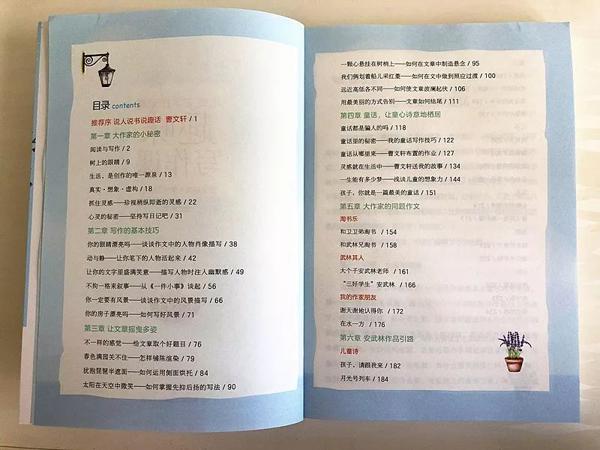 目录 contents
推荐序 说人说书说趣话 曹文轩 / 1
第一章 大作家的小秘密
阅读与写作 / 2
树上的眼睛 / 9
生活，是创作的唯一源泉 / 13
真实·想象·虚构 / 18
抓住灵感——珍视稍纵即逝的灵感 / 22
心灵的秘密——坚持写日记吧 / 31
第二章 写作的基本技巧
你的眼睛漂亮吗——谈谈作文中的人物肖像描写 / 38
动与静——让你笔下的人物活起来 / 42
让你的文字里盛满笑意——描写人物时注入幽默感 / 49
不拘一格来叙事——从《一件小事》谈起 / 56
你一定要有风景——谈谈作文中的风景描写 / 66
你的房子漂亮吗——如何写好风景 / 71
第三章 让文章摇曳多姿
不一样的感觉——给文章取个好题目 / 76
春色满园关不住——怎样铺陈渲染 / 79
犹抱琵琶半遮面——如何运用侧面烘托 / 84
太阳在天空中微笑——如何掌握先抑后扬的写法 / 90
一颗心悬挂在树梢上——如何在文章中制造悬念 / 95
我们俩划着船儿采红菱——如何在文中做到照应过渡 / 100
远近高低各不同——如何使文章波澜起伏 / 106
用最美丽的方式告别——文章如何结尾 / 111
第四章 童话，让童心诗意地栖居
童话都是骗人的吗 / 118
童话里的秘密——我的童话写作技巧 / 122
童话从哪里来——曹文轩布置的作业 / 127
灵感就在生活中——曹文轩送我的故事 / 134
一生能有多少梦——浅谈儿童的想象力 / 144
孩子，你就是一篇最美的童话 / 151
第五章 大作家的同题作文
淘书乐
和卫卫弟淘书 / 154
和武林兄淘书 / 158
武林其人
大个子安武林老师 / 161
“三好学生”安武林 / 166
我的作家朋友
谢天谢地认得你 / 172
在水一方 / 176
第六章 安武林作品引路
儿童诗
孩子，请跟我来 / 182
月光号列车 / 184